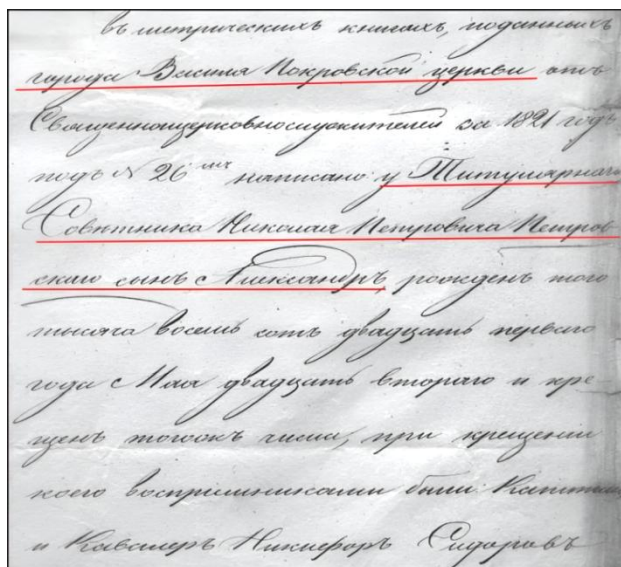 въ метрическихъ книгахъ, поданныхъ
города Василя Покровской церкви отъ
Священноцерковнослужителей за 1821 годъ
подъ № 26 мъ написано у Титулярнаго
Совѣтника Николая Петровича Петров-
скаго сынъ Александръ, рожденъ того
тысяча восемь сотъ двадцать перваго
года Мая двадцать втораго и кре-
щенъ тогожъ числа, при крещеніи
коего воспріемниками были Капитанъ
и Кавалеръ Никифоръ Сидоровъ